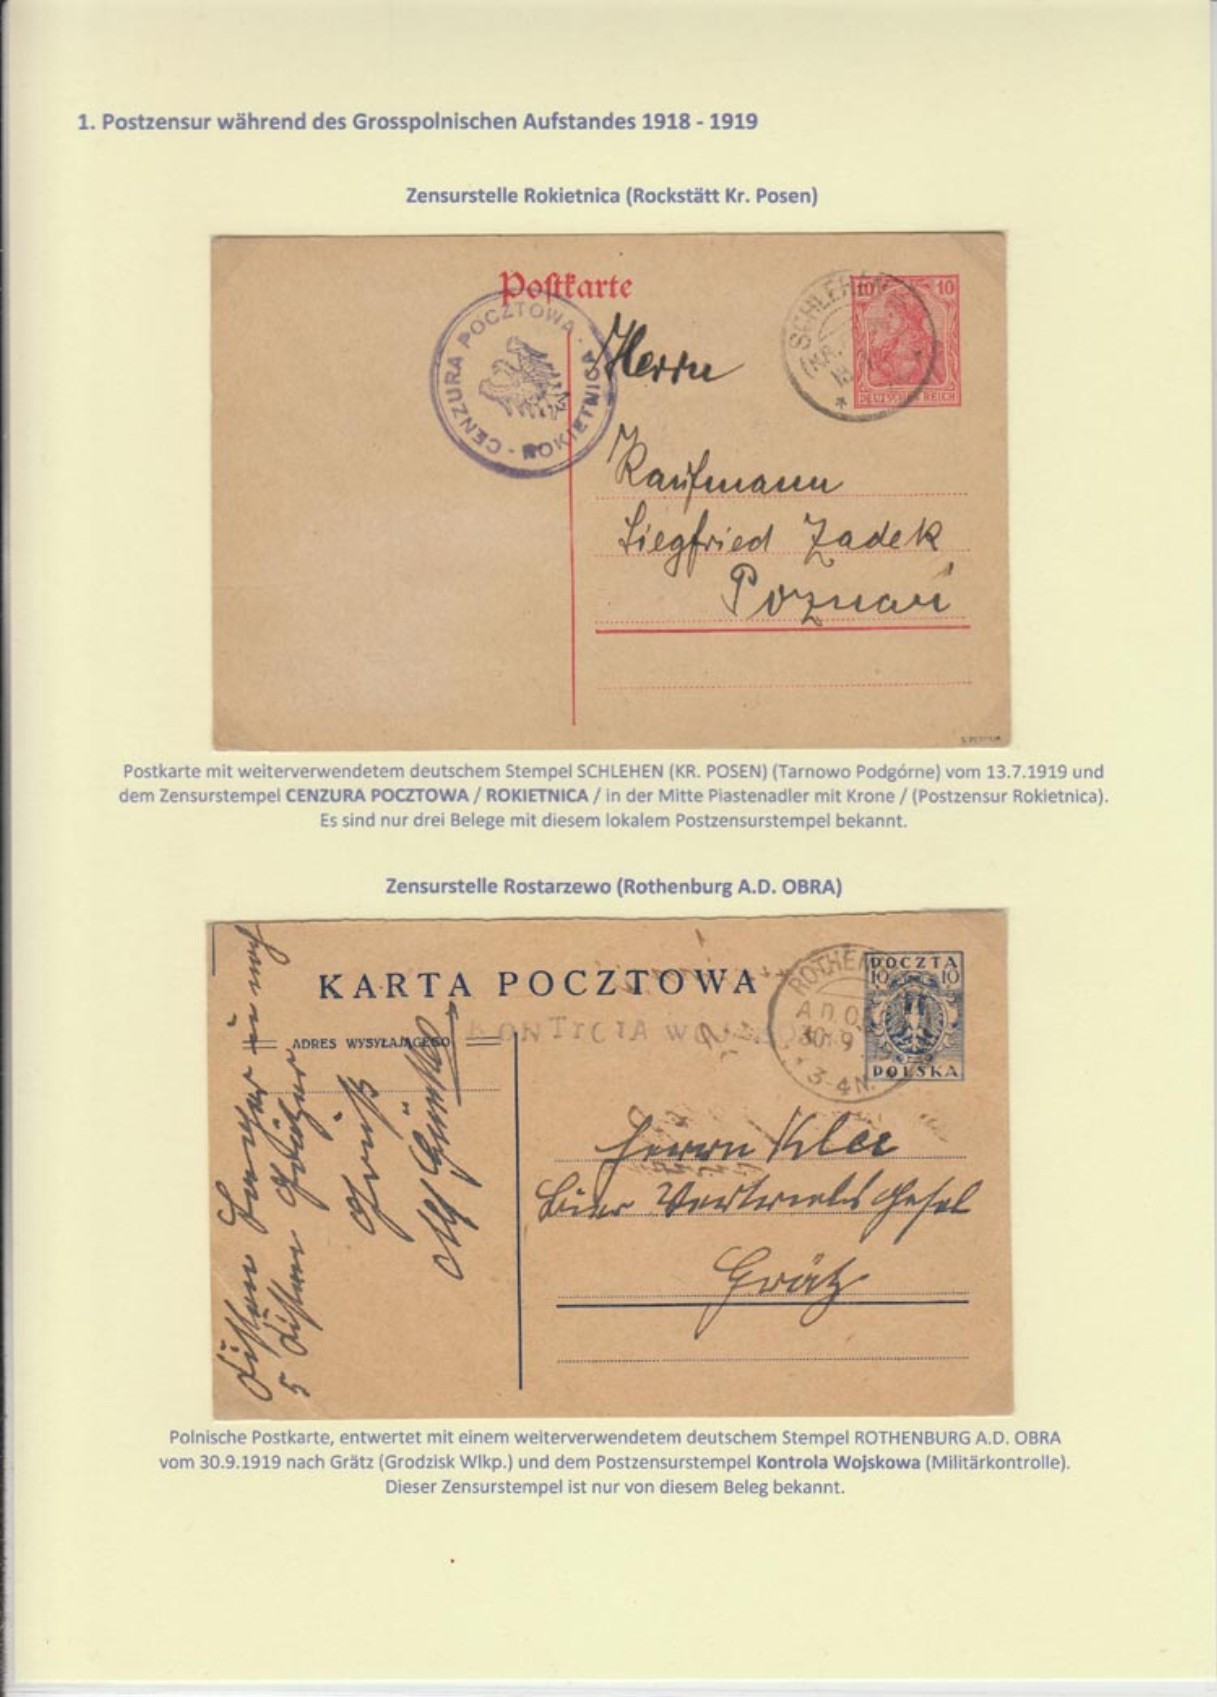 1. Postzensur während des Grosspolnischen Aufstandes 1918 - 1919
Zensurstelle Rokietnica (Rockstätt Kr. Posen)
Postkarte
CENZURA POCZTOWA · ROKIETNICA
SCHLEHEN
(KR.
10 10
DEUTSCHES REICH
Herrn
Kaufmann
Siegfried Zadek
Poznań
Postkarte mit weiterverwendetem deutschem Stempel SCHLEHEN (KR. POSEN) (Tarnowo Podgórne) vom 13.7.1919 und
dem Zensurstempel CENZURA POCZTOWA / ROKIETNICA / in der Mitte Piastenadler mit Krone / (Postzensur Rokietnica).
Es sind nur drei Belege mit diesem lokalem Postzensurstempel bekannt.
Zensurstelle Rostarzewo (Rothenburg A.D. OBRA)
KARTA POCZTOWA
ADRES WYSYŁAJĄCEGO
ROTHEN
A.D.O.
30. 9
* 3-4N.
POCZTA
10 10
POLSKA
Herrn Klee
Bier Vertriebs Gesel
Grätz
Polnische Postkarte, entwertet mit einem weiterverwendetem deutschem Stempel ROTHENBURG A.D. OBRA
vom 30.9.1919 nach Grätz (Grodzisk Wlkp.) und dem Postzensurstempel Kontrola Wojskowa (Militärkontrolle).
Dieser Zensurstempel ist nur von diesem Beleg bekannt.